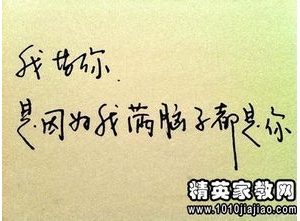 我你.
是因为我满脑子都是你
精英家教网
www.1010jiajiao.com